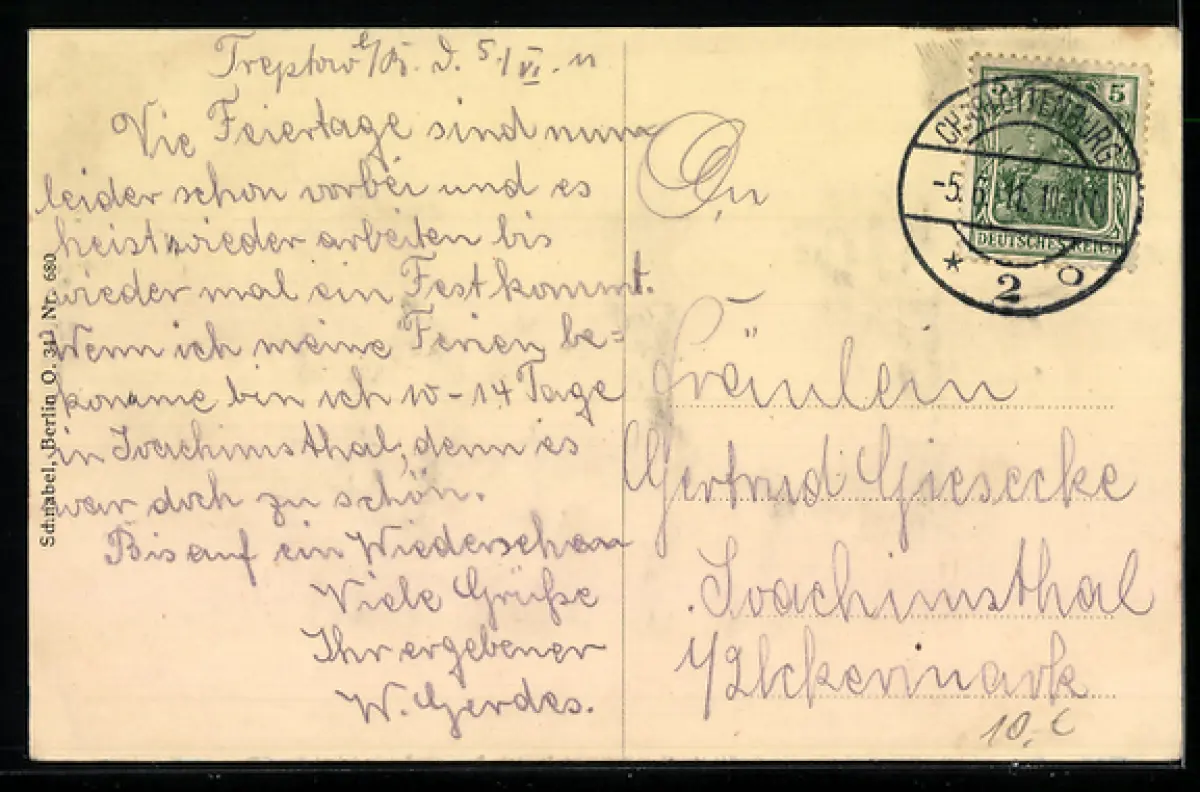 Treptow d. 5./VI. 11
Die Feiertage sind nun
leider schon vorbei und es
heist wieder arbeiten bis
wieder mal ein Fest kommt.
Wenn ich meine Ferien be=
komme bin ich 10-14 Tage
in Joachimsthal, denn es
war doch zu schön.
Bis auf ein Wiedersehen
Viele Grüße
Ihr ergebener
W. Gerdes.
Schnabel, Berlin O. 34, Nr. 680
5
DEUTSCHES REICH
CHARLOTTENBURG
-5.6.11. 10-11
* 2 o
An
Fräulein
Gertrud Giesecke
Joachimsthal
i/Uckermark
10,-